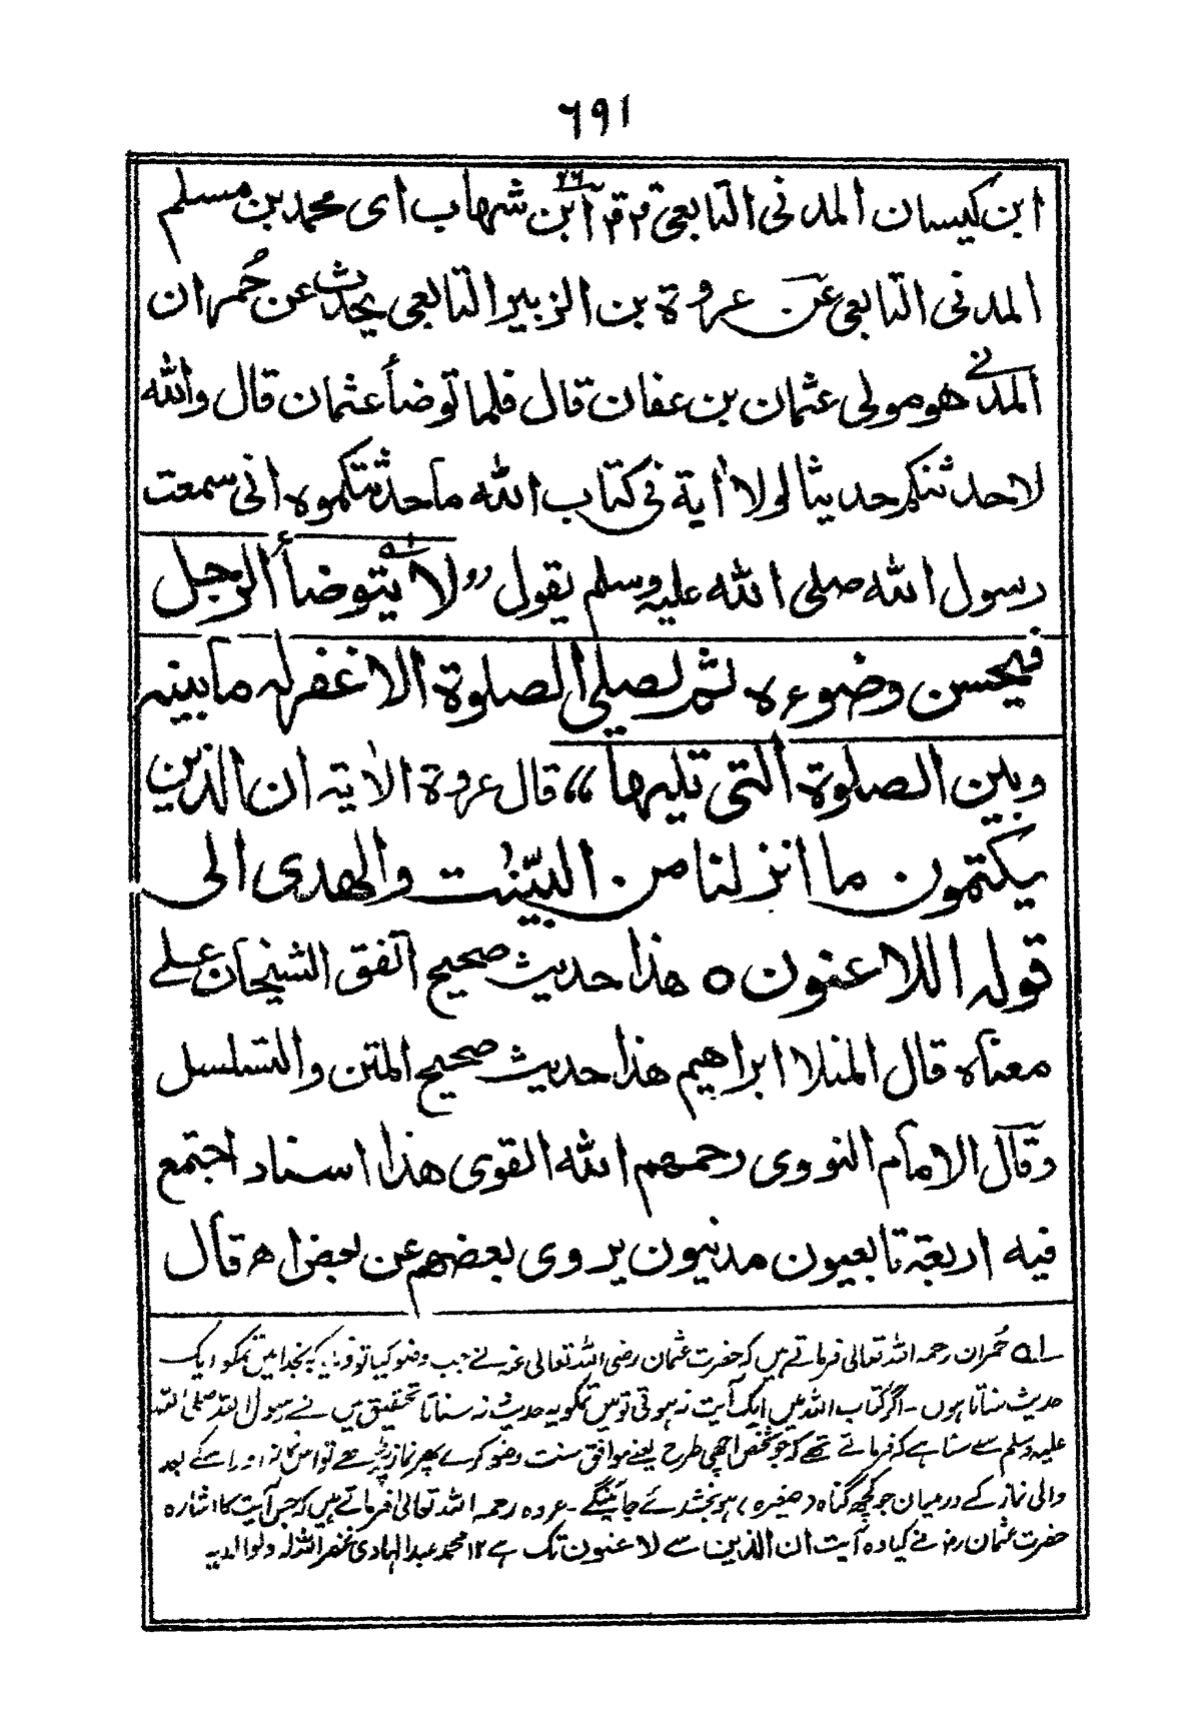 ٦٩١
ابن كيسان المدنى التابعى ابن شهاب اى محمد بن مسلم
المدنى التابعى عن عروة بن الزبير التابعى يحدث عن حُمران
المدنى هو مولى عثمان بن عفان قال فلما توضأ عثمان قال والله
لاحدثنكم حديثا لولا اية فى كتاب الله ما حدثتكموه انى سمعت
رسول الله صلى الله عليه وسلم يقول "لا يتوضأ الرجل
فيحسن وضوءه ثم يصلى الصلوة الا غفر له ما بينه
وبين الصلوة التى تليها" قال عروة الاية ان الذين
يكتمون ما انزلنا من البيّنٰت والهدى الى
قوله اللاعنون ○ هذا حديث صحيح اتفق الشيخان على
معناه قال المنلا ابراهيم هذا حديث صحيح المتن والتسلسل
وقال الامام النووى رحمهم الله القوى هذا اسناد اجتمع
فيه اربعة تابعيون مدنيون يروى بعضهم عن بعض اه قال
؎١ حُمران رحمہ اللہ تعالی فرماتے ہیں کہ حضرت عثمان رضی اللہ تعالی عنہ نے جب وضو کیا تو فرمایا کہ بخدا میں تمکو ایک
حدیث سناتا ہوں ۔ اگر کتاب اللہ میں ایک آیت نہ ہوتی تو میں تمکو یہ حدیث نہ سناتا تحقیق میں نے رسول اللہ صلی اللہ
علیہ وسلم سے سنا ہے کہ فرماتے تھے کہ جو شخص اچھی طرح یعنے موافق سنت وضو کرے پھر نماز پڑھے تو اس نماز اور اسکے بعد
والی نماز کے درمیان جو کچھ گناہ (صغیرہ) ہو بخشدئے جائینگے ۔ عروہ رحمہ اللہ تعالیٰ فرماتے ہیں کہ جس آیت کا اشارہ
حضرت عثمان رضؓ نے کیا وہ آیت ان الذین سے لاعنون تک ہے ١٢ محمد عبدالہادی غفر اللہ لہ ولوالدیہ